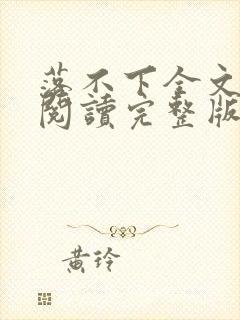 落不下全文
閱讀完整版
黃玲